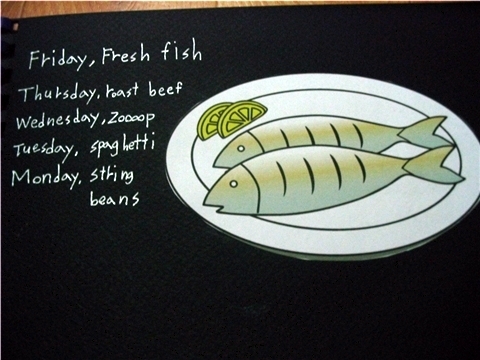 Friday, Fresh fish
Thursday, roast beef
Wednesday, Zoooop
Tuesday, spaghetti
Monday, string
beans